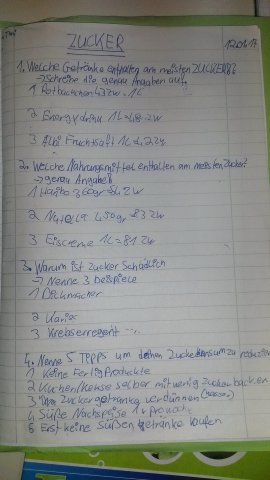 ZUCKER
1. Welche Getränke enthalten am meisten ZUCKER?
→ Schreibe die genau Angaben auf.
1 Rotbäckchen 43 Zw. 1L
2 Energydrink 1L =
3 Albi Fruchtsaft 1L = 42 Zw
2. Welche Nahrungsmittel enthalten am meisten Zucker?
→ genau Angaben
1 Haribo 360gr = 54,2 w
2 Nutella 450gr 83 Zw
3 Eiscreme 1L = 81 Zw
3. Warum ist Zucker Schädlich
→ Nenne 3 beispiele
1 Dickmacher
2 Karies
3 Krebserregent
4. Nenne 5 TIPPS um deinen Zuckerkonsum zu
1 Keine Fertig Produckte
2 Kuchen/Kekse selber mit wenig Zucker backen
3 Zuckergetränke verdünnen
4 Süße Nachspeise 1x
5 Erst keine Süßen getränke kaufen